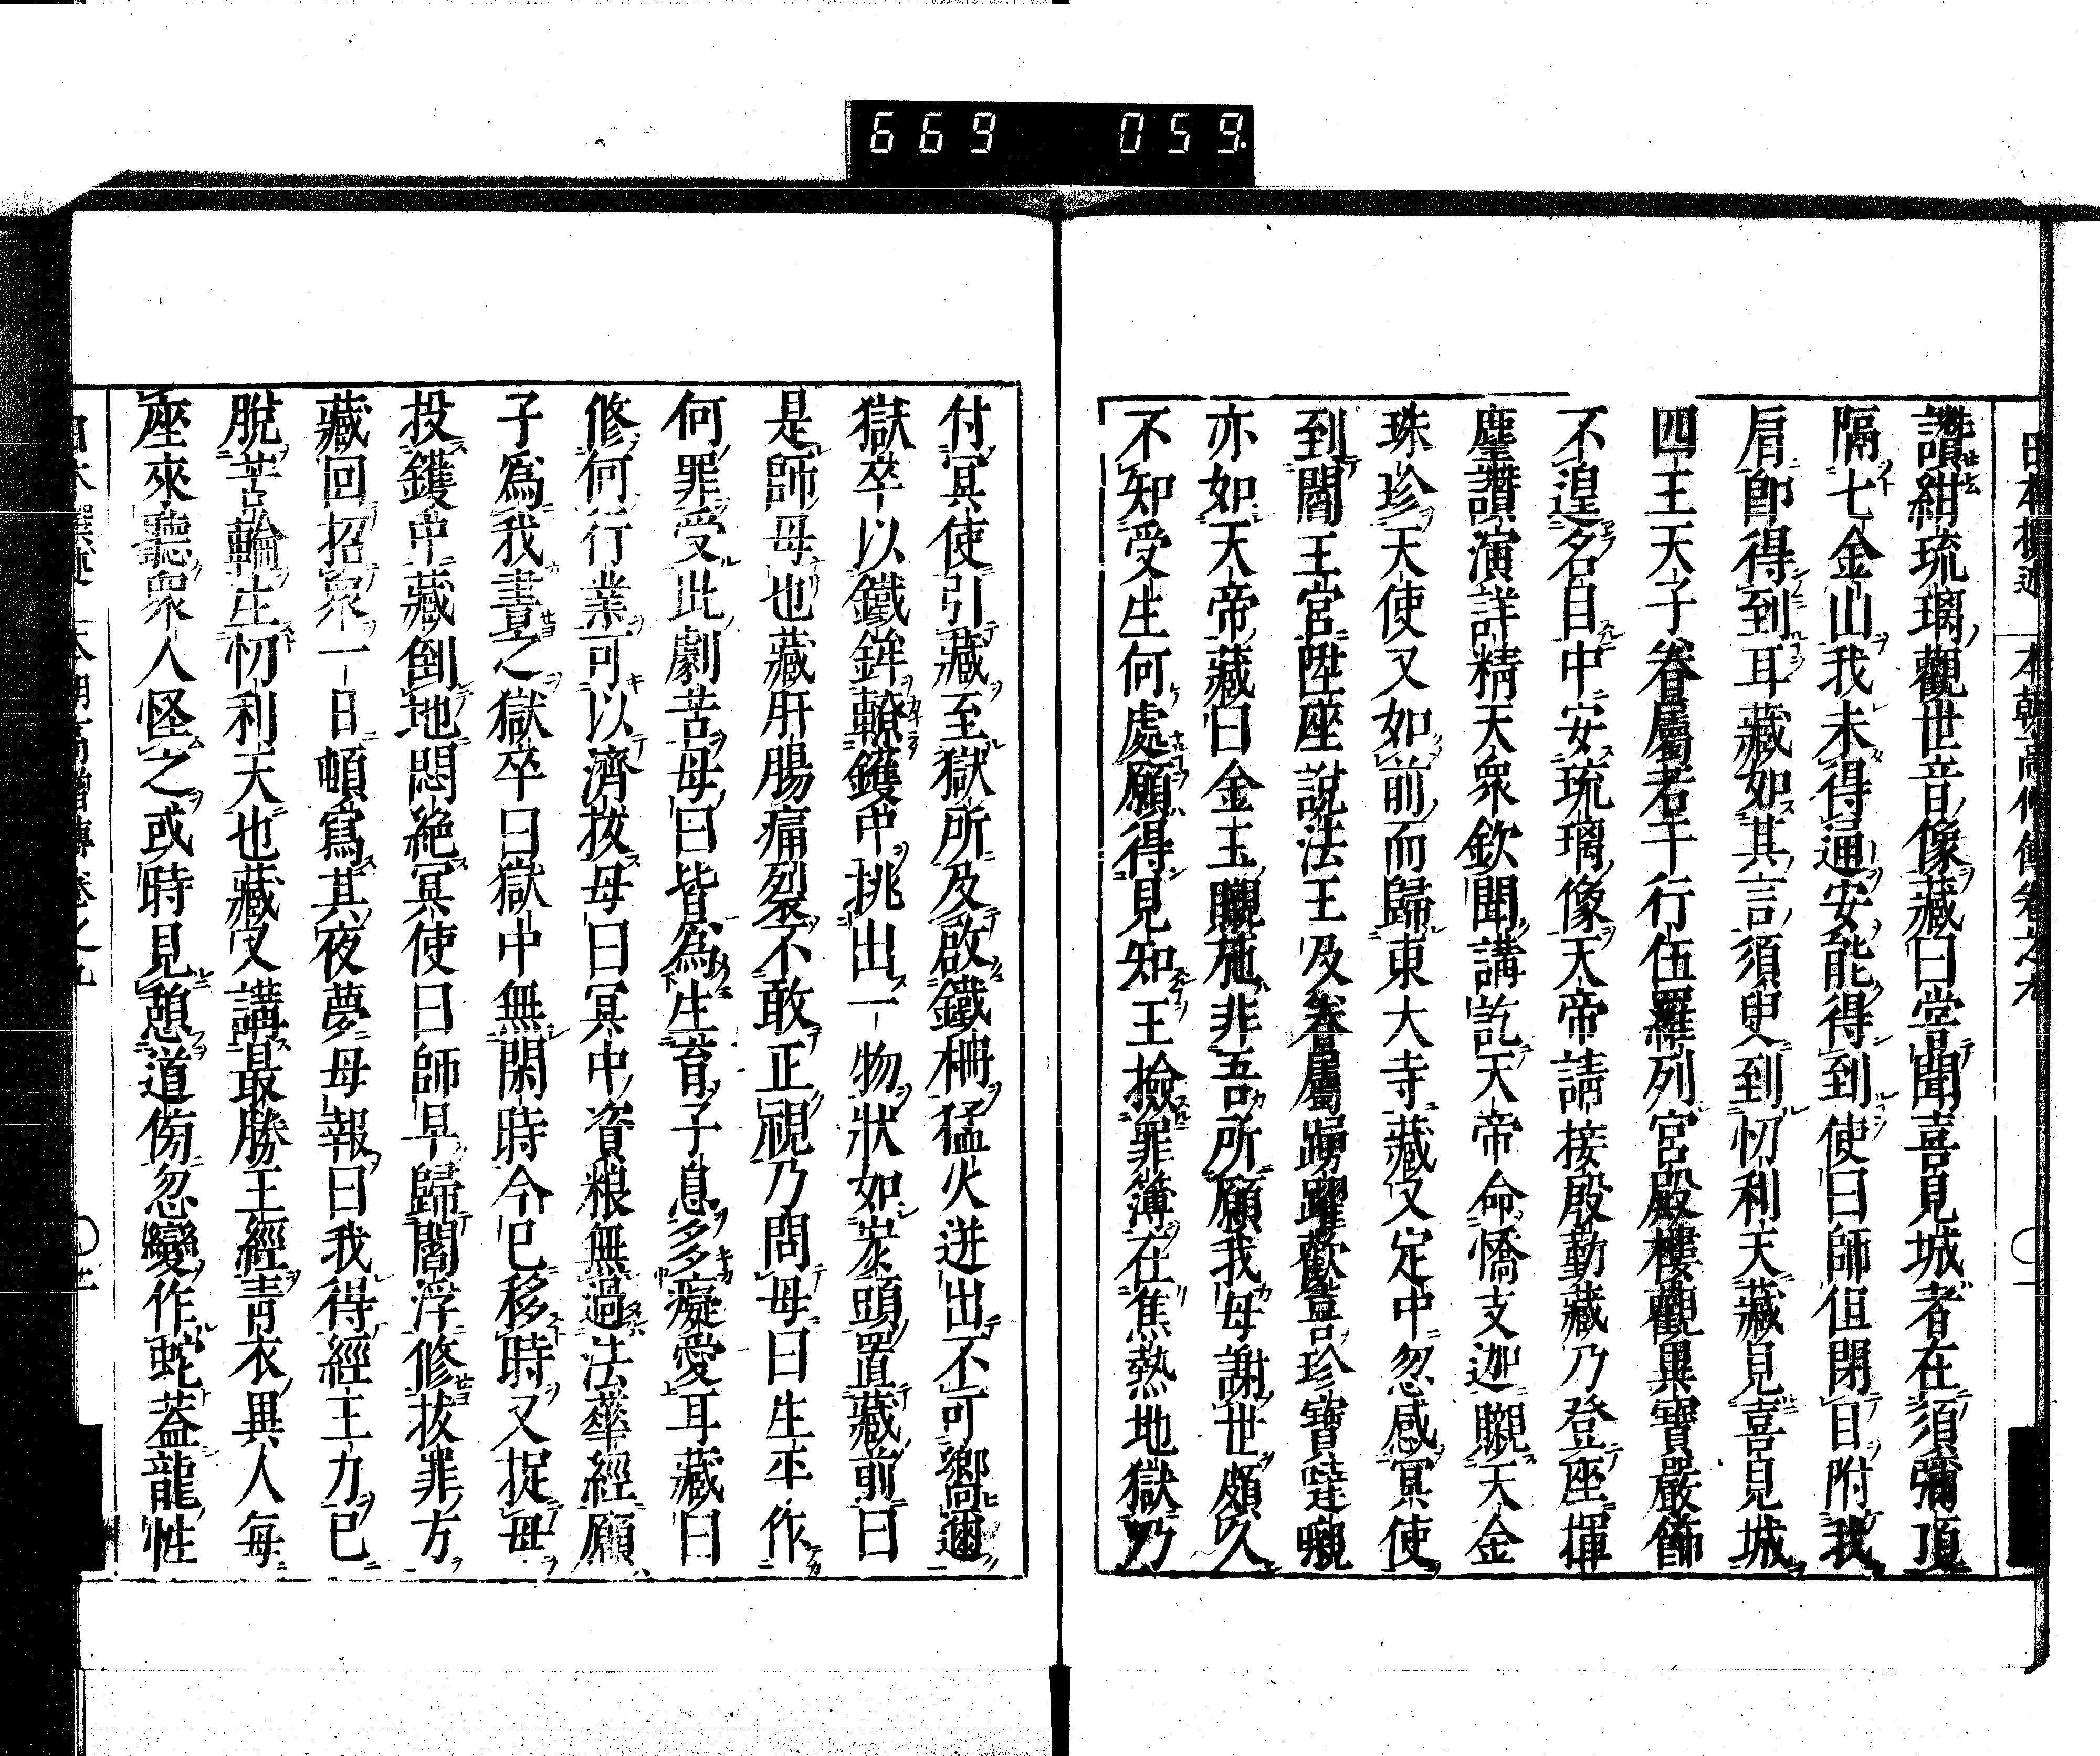 669 059
日本撰述 本朝高僧傳卷之九
讚紺琉璃觀世音像藏曰嘗聞喜見城者在須彌頂
隔七金山我未得通安能得到使曰師但閉目附我
肩卽得到耳藏如其言須臾到忉利天藏見喜見城
四王天子眷屬若干行伍羅列宮殿樓觀異寶嚴飾
不遑名目中安琉璃像天帝請接殷勤藏乃登座揮
麈讚演詳精天衆欽聞講訖天帝命憍支迦矙天金
珠珍天使又如前而歸東大寺藏又定中忽感冥使
到閻王宮陞座說法王及眷屬踴躍歡喜珍寶嚫
亦如天帝藏曰金玉嚫施非吾所願我母謝世頗久
不知受生何處願得見知王撿罪簿在焦熱地獄乃
付冥使引藏至獄所及啟鐵柵猛火迸出不可嚮邇
獄卒以鐵鉾轑鑊中挑出一物狀如炭頭置藏前曰
是師母也藏肝腸痛裂不敢正視乃問母曰生平作
何罪受此劇苦母曰皆爲生育子息多癡愛耳藏曰
修何行業可以濟拔母曰冥中資粮無過法華經願
子爲我書之獄卒曰獄中無閑時今已移時又捉母
投鑊中藏倒地悶絶冥使曰師早歸閻浮修拔罪方
藏回招衆一日頓寫其夜夢母報曰我得經王力已
脫苦輪生忉利天也藏又講最勝王經靑衣異人每
座來聽衆人怪之或時見憩道傍忽變作蛇蓋龍性